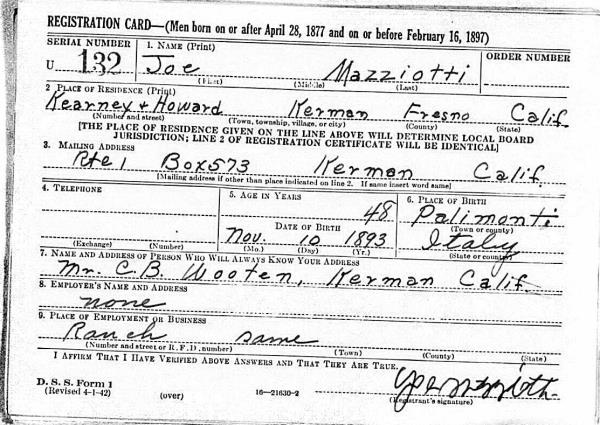 REGISTRATION CARD—(Men born on or after April 28, 1877 and on or before February 16, 1897)
SERIAL NUMBER 1. NAME (Print) ORDER NUMBER
U 132 Joe Mazziotti
(First) (Middle) (Last)
2. PLACE OF RESIDENCE (Print)
Kearney + Howard Kerman Fresno Calif.
(Number and street) (Town, township, village, or city) (County) (State)
[THE PLACE OF RESIDENCE GIVEN ON THE LINE ABOVE WILL DETERMINE LOCAL BOARD
JURISDICTION; LINE 2 OF REGISTRATION CERTIFICATE WILL BE IDENTICAL]
3. MAILING ADDRESS
Rte 1 Box 573 Kerman Calif.
[Mailing address if other than place indicated on line 2. If same insert word same]
4. TELEPHONE 5. AGE IN YEARS 6. PLACE OF BIRTH
48 Palimonti
DATE OF BIRTH (Town or county)
Nov. 10 1893 Italy
(Exchange) (Number) (Mo.) (Day) (Yr.) (State or country)
7. NAME AND ADDRESS OF PERSON WHO WILL ALWAYS KNOW YOUR ADDRESS
Mr. C. B. Wooten, Kerman Calif.
8. EMPLOYER'S NAME AND ADDRESS
none
9. PLACE OF EMPLOYMENT OR BUSINESS
Ranch same
(Number and street or R. F. D. number) (Town) (County) (State)
I AFFIRM THAT I HAVE VERIFIED ABOVE ANSWERS AND THAT THEY ARE TRUE.
D. S. S. Form 1
(Revised 4-1-42) (over) 16—21630-2 (Registrant's signature)